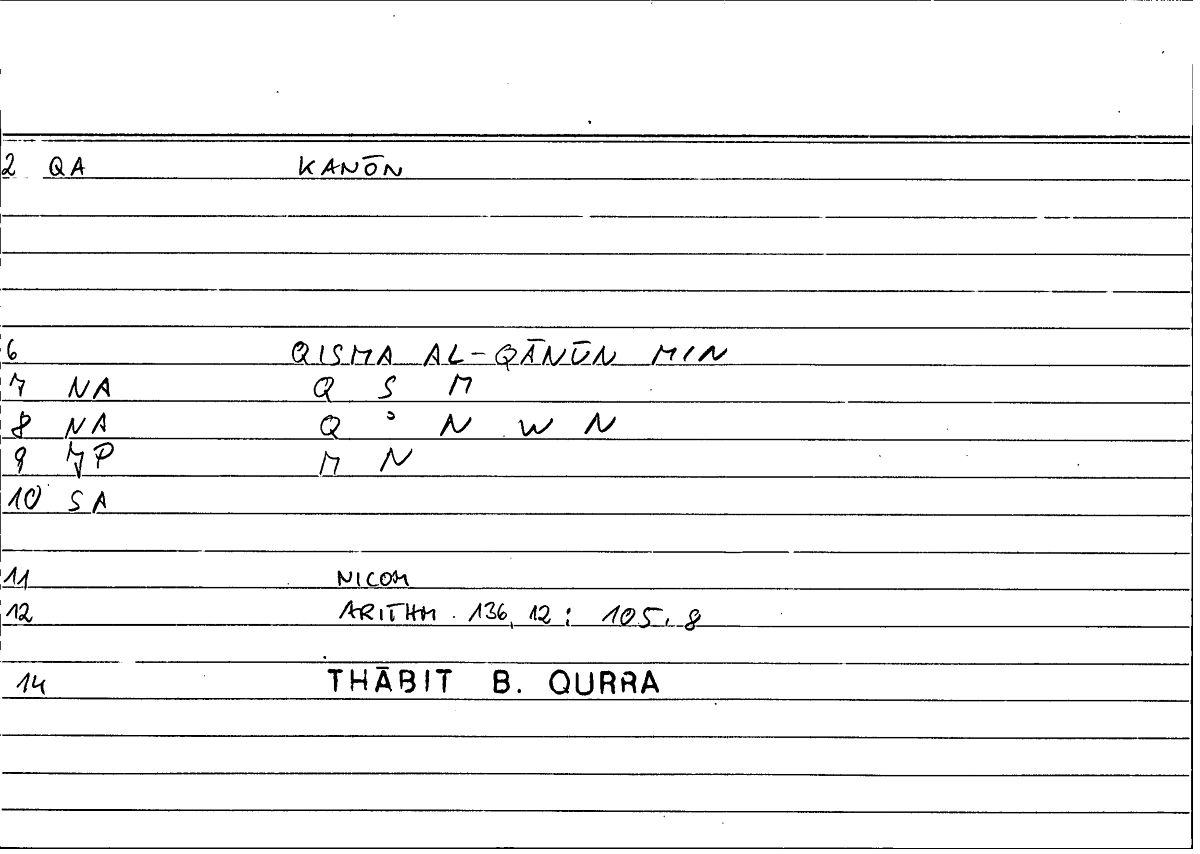 2 QA KANŌN
6 QISMA AL-QĀNŪN MIN
7 NA Q S M
8 NA Q ° N W N
9 JP M N
10 SA
11 NICOM
12 ARITHM. 136,12: 105.8
14 THĀBIT B. QURRA